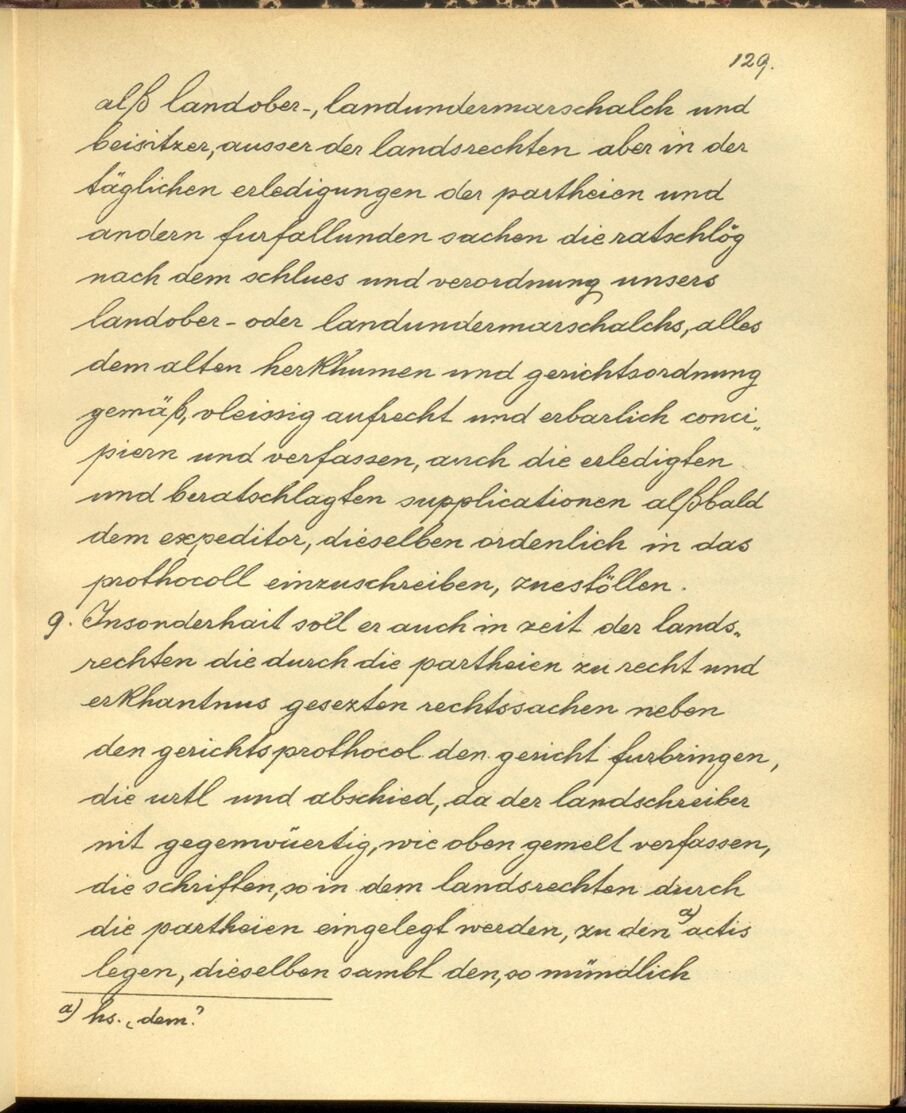 129.
alß landober-, landundermarschalch und
beisitzer, ausser der landsrechten aber in der
täglichen erledigungen der partheien und
andern furfallunden sachen die ratschlög
nach dem schlues und verordnung unsers
landober- oder landundermarschalchs, alles
dem alten herkhumen und gerichtsordnung
gemäß, vleissig aufrecht und erbarlich conci„
piern und verfassen, auch die erledigten
und beratschlagten supplicationen alßbald
dem expeditor, dieselben ordenlich in das
prothocoll einzuschreiben, zuestöllen.
9. Insonderhait soll er auch in zeit der lands„
rechten die durch die partheien zu recht und
erkhantnus gesezten rechtssachen neben
den gerichtsprothocol den gericht furbringen,
die urtl und abschied, da der landschreiber
nit gegenwüertig, wie oben gemelt verfassen,
die schriften, so in dem landsrechten durch
die partheien eingelegt werden, zu den a) actis
legen, dieselben sambt den, so mündlich
a) hs. „dem"